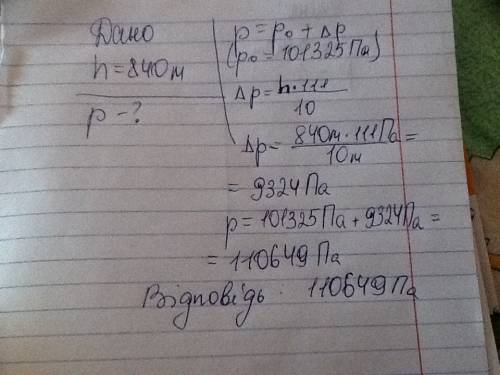 Дано
h=840м
p-?
p=p₀+Δp
(p₀=101325Па)
Δp=h·111/10
Δp=840м·111Па/10м=
=9324Па
p=101325Па+9324Па=
=110649Па
Відповідь: 110649Па